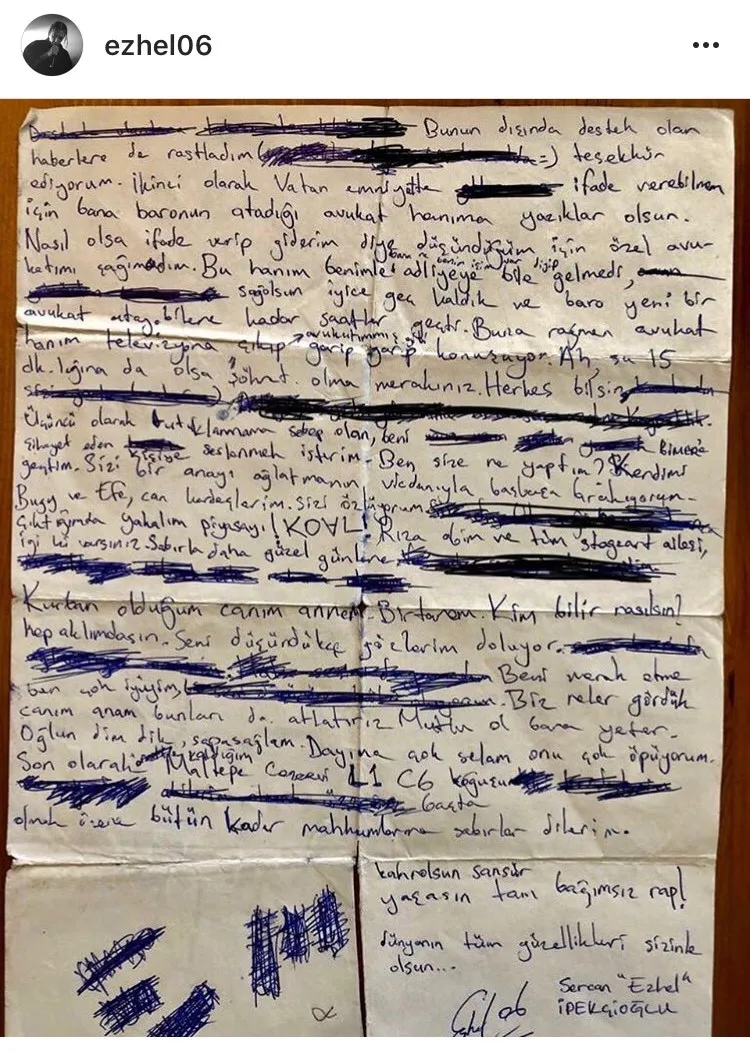 ezhel06
Bunun dışında destek olan
haberlere de rastladım ( =) teşekkür
ediyorum. İkinci olarak Vatan emniyette ifade verebilmem
için bana baronun atadığı avukat hanıma yazıklar olsun.
Nasıl olsa ifade verip giderim diye düşündüğüm için özel avu-
katımı çağırmadım. Bu hanım benimle adliyeye bile gelmedi,
sağolsun iyice geç kaldık ve baro yeni bir
avukat atayabilene kadar saatler geçti. Buna rağmen avukat
hanım televizyona çıkıp avukatınmış gibi garip garip konuşuyor. Ah, şu 15
dk.lığına da olsa şöhret olma merakınız. Herkes bilsin
Üçüncü olarak tutuklanmama sebep olan, beni BİMER'e
şikayet eden kişiye seslenmek isterim. Ben size ne yaptım? Kendimi
geçtim. Sizi bir anayı ağlatmanın vicdanıyla başbaşa bırakıyorum.
Bugy ve Efe, can kardeşlerim. Sizi özlüyorum
Çıktığımda yakalım piyasayı! KOVL! Rıza abim ve tüm stageart ailesi,
iyi ki varsınız. Sabırla daha güzel günlere
Kurban olduğum canım annem. Birtanem. Kim bilir nasılsın?
hep aklımdasın. Seni düşündükçe gözlerim doluyor.
Beni merak etme
ben çok iyiyim, Biz neler gördük
canım anam bunları da atlatırız. Mutlu ol bana yeter.
Oğlun dim dik, sapasağlam. Dayıma çok selam onu çok öpüyorum.
Son olarak kaldığım Maltepe Cezaevi L1 C6 koğuşu
başta
olmak üzere bütün kader mahkumlarına sabırlar dilerim.
kahrolsun sansür
yaşasın tam bağımsız rap!
dünyanın tüm güzellikleri sizinle
olsun...
Sercan "Ezhel"
İPEKÇİOĞLU